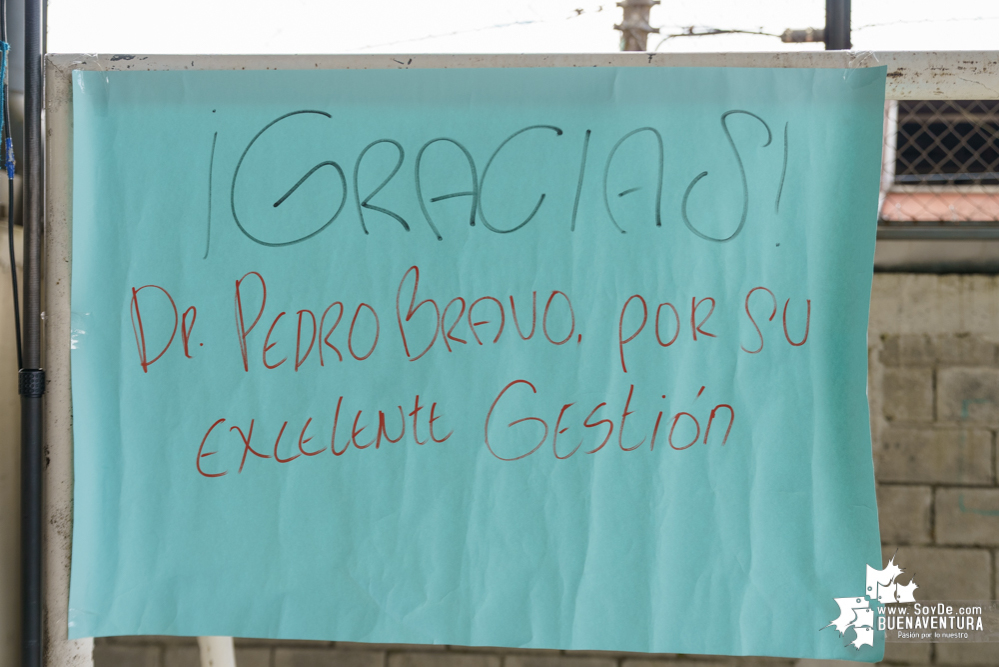 ¡GRACIAS!
Dr. PEDRO BRAVO, POR SU
EXCELENTE GESTIÓN
www.SoyDe.com
BUENAVENTURA
Pasión por lo nuestro